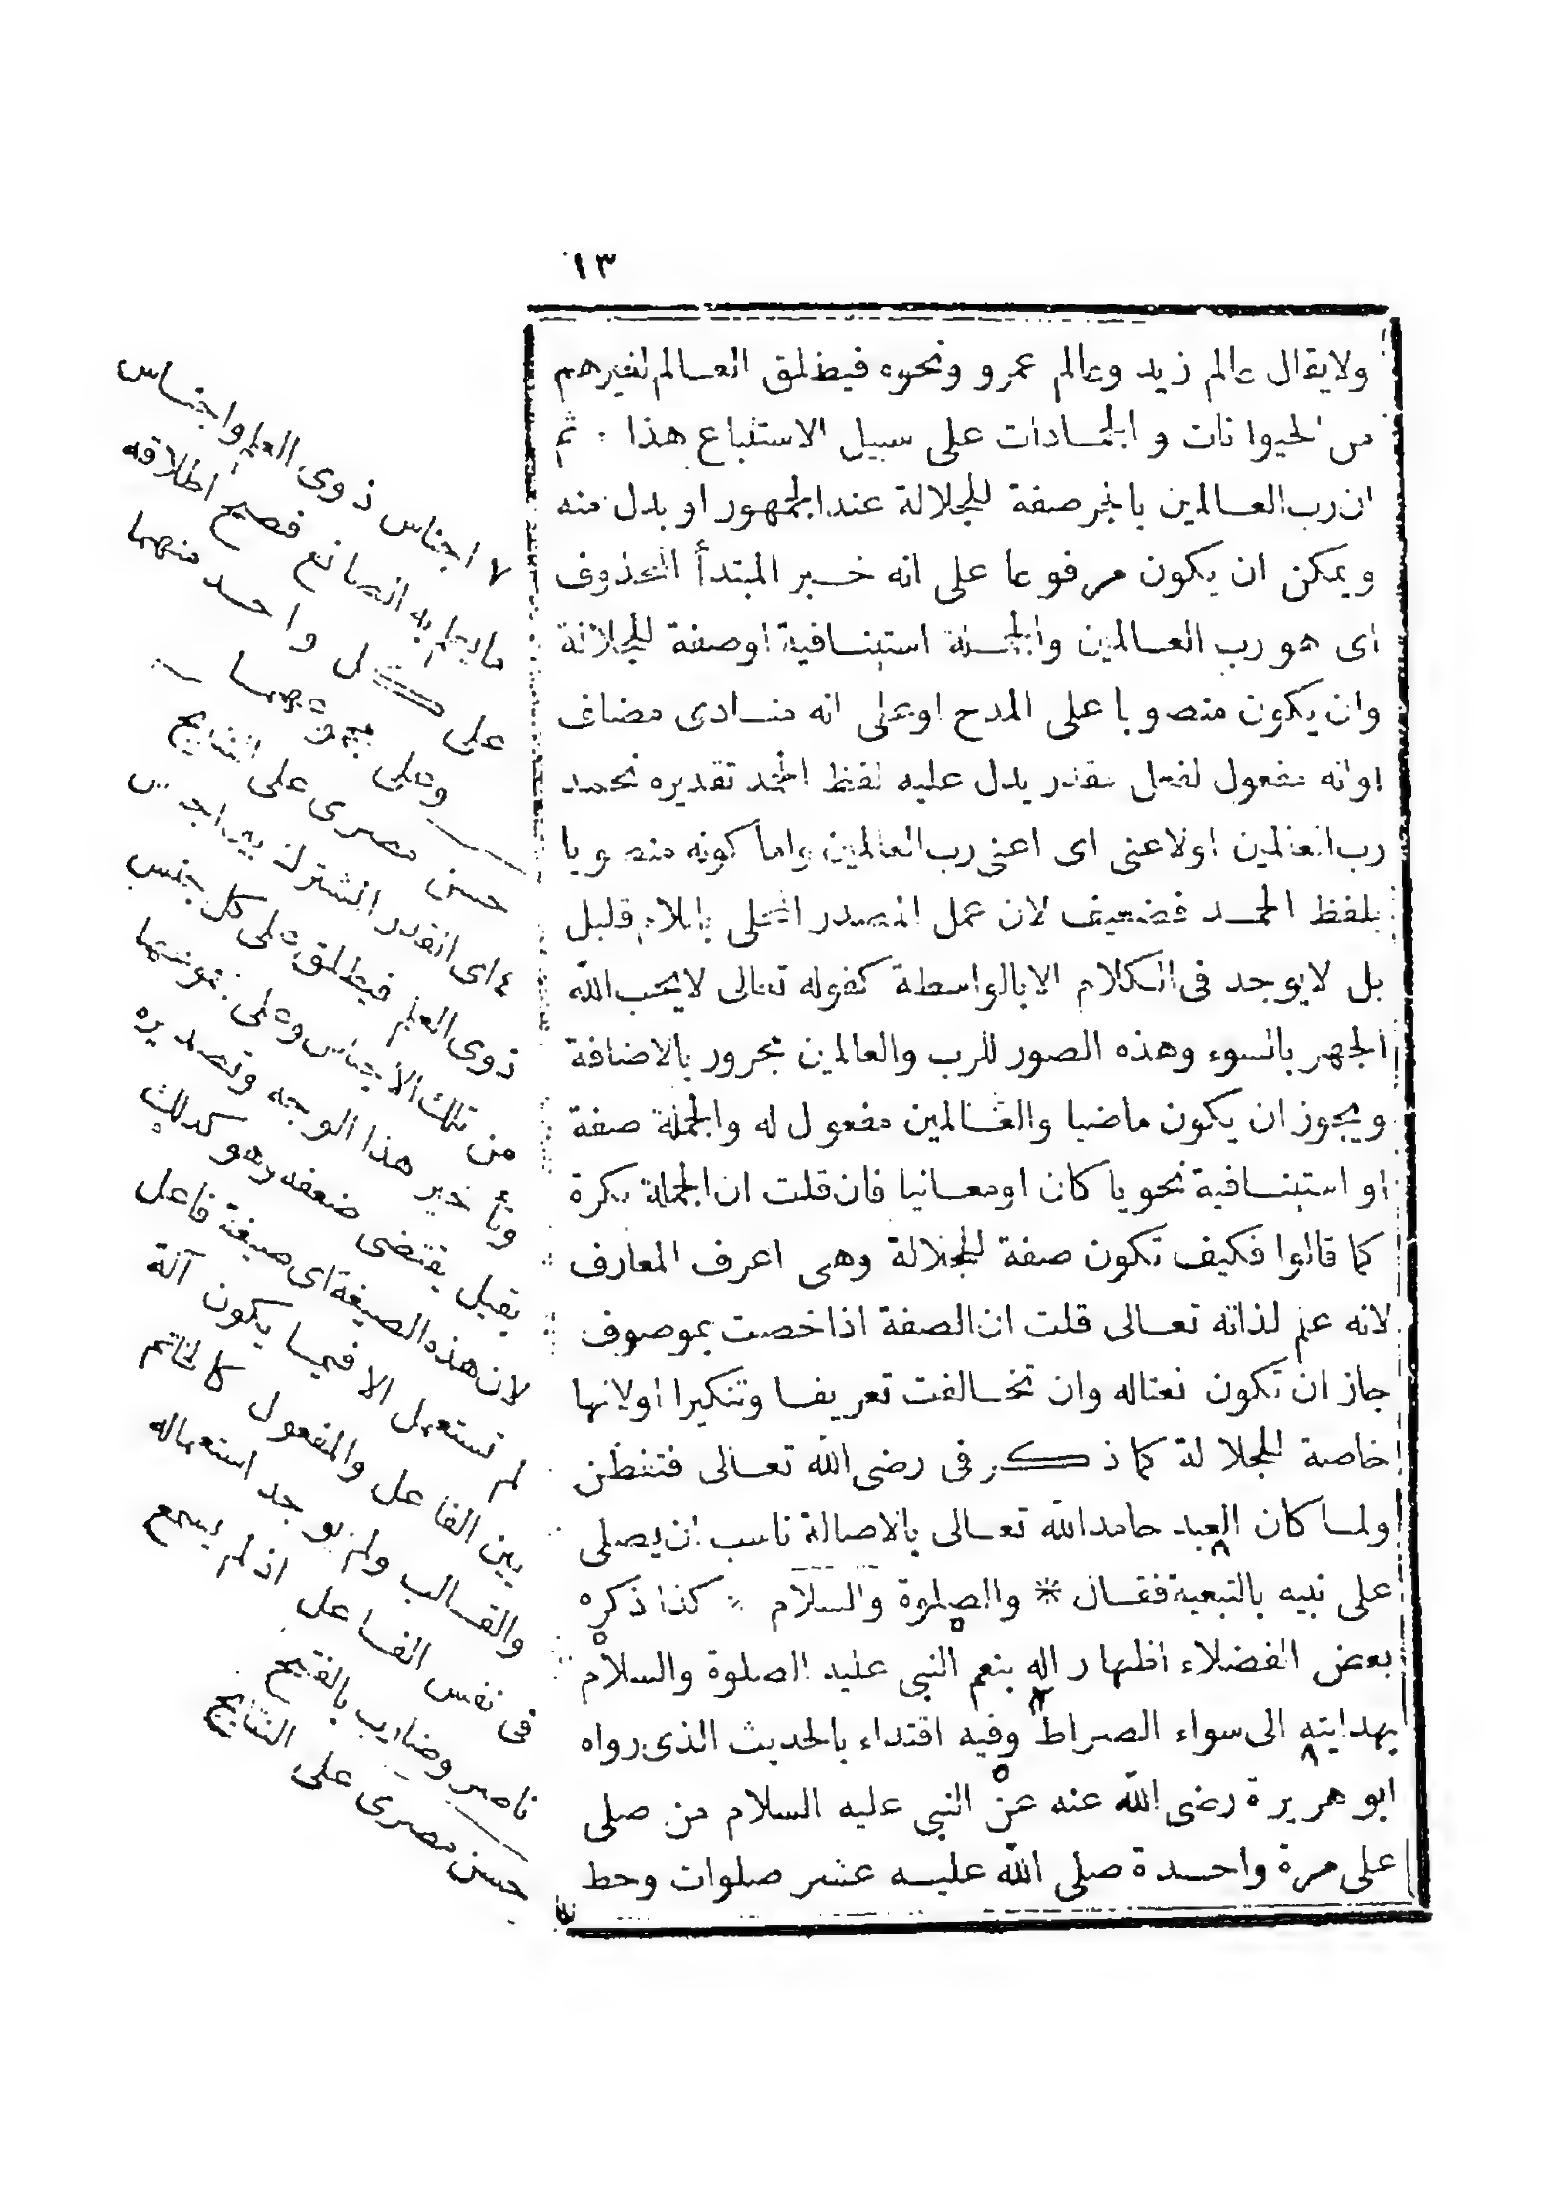 ١٣
ولا يقال عالم زيد وعالم عمرو ونحوه فيطلق العالم لغيرهم
من الحيوانات والجمادات على سبيل الاستتباع هذا ثم
ان رب العالمين بالجر صفة للجلالة عند الجمهور او بدل منه
ويمكن ان يكون مرفوعا على انه خبر المبتدأ المحذوف
اى هو رب العالمين والجملة استينافية او صفة للجلالة
وان يكون منصوبا على المدح او على انه منادى مضاف
او انه مفعول لفعل مقدر يدل عليه لفظ الحمد تقديره نحمد
رب العالمين اولاعنى اى اعنى رب العالمين واما كونه منصوبا
بلفظ الحمد فضعيف لان عمل المصدر المحلى باللام قليل
بل لا يوجد فى الكلام الا بالواسطة كقوله تعالى لا يحب الله
الجهر بالسوء وهذه الصور للرب والعالمين مجرور بالاضافة
ويجوز ان يكون ماضيا والعالمين مفعول له والجملة صفة
او استينافية نحويا كان او معانيا فان قلت ان الجملة نكرة
كما قالوا فكيف تكون صفة للجلالة وهى اعرف المعارف
لانه علم لذاته تعالى قلت ان الصفة اذا خصت بموصوف
جاز ان تكون نعتا له وان تخالفت تعريفا وتنكيرا اولانها
خاصة للجلالة كما ذكر فى رضى الله تعالى فتفطن
ولما كان العبد حامدا لله تعالى بالاصالة ناسب ان يصلى
على نبيه بالتبعية فقال * والصلوة والسلام كذا ذكره
بعض الفضلاء اظهارا له بنعم النبى عليه الصلوة والسلام
بهدايته الى سواء الصراط وفيه اقتداء بالحديث الذى رواه
ابو هريرة رضى الله عنه عن النبى عليه السلام من صلى
على مرة واحدة صلى الله عليه عشر صلوات وحط
٧ اجناس ذوى العلم واجناس
ما يعلم به الصانع فصح اطلاقه
على كل واحد منهما
وعلى مجموعهما
حسن مصرى على النتايج
٤ اى القدر المشترك بين اجناس
ذوى العلم فيطلق على كل جنس
من تلك الاجناس وعلى مجموعها
وتأخير هذا الوجه وتصديره
بقيل يقتضى ضعفه وهو كذلك
لان هذه الصيغة اى صيغة فاعل
لم تستعمل الا فيما يكون آلة
بين الفاعل والمفعول كالخاتم
والقالب ولم يوجد استعماله
فى نفس الفاعل اذ لم يسمع
ناصر وضارب بالفتح
حسن مصرى على النتايج